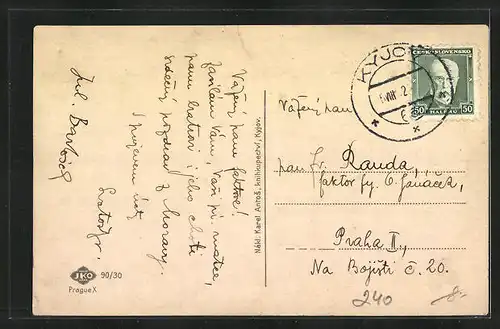 Vážený pane faktore!
Zasílám Vám, Vaší pí. matce,
panu bratrovi i jeho choti
srdečný pozdrav z Moravy.
S projevem úcty
Jul. Bartošek
Nákl. Karel Antoš, knihkupectví, Kyjov.
JKO
90/30
Prague X
KYJOV
ČESKOSLOVENSKO
50 HALÉŘŮ 50
Vážený pan
pan Fr. Randa,
faktor fy. O. Janáček,
Praha II.,
Na Bojišti č. 20.
240